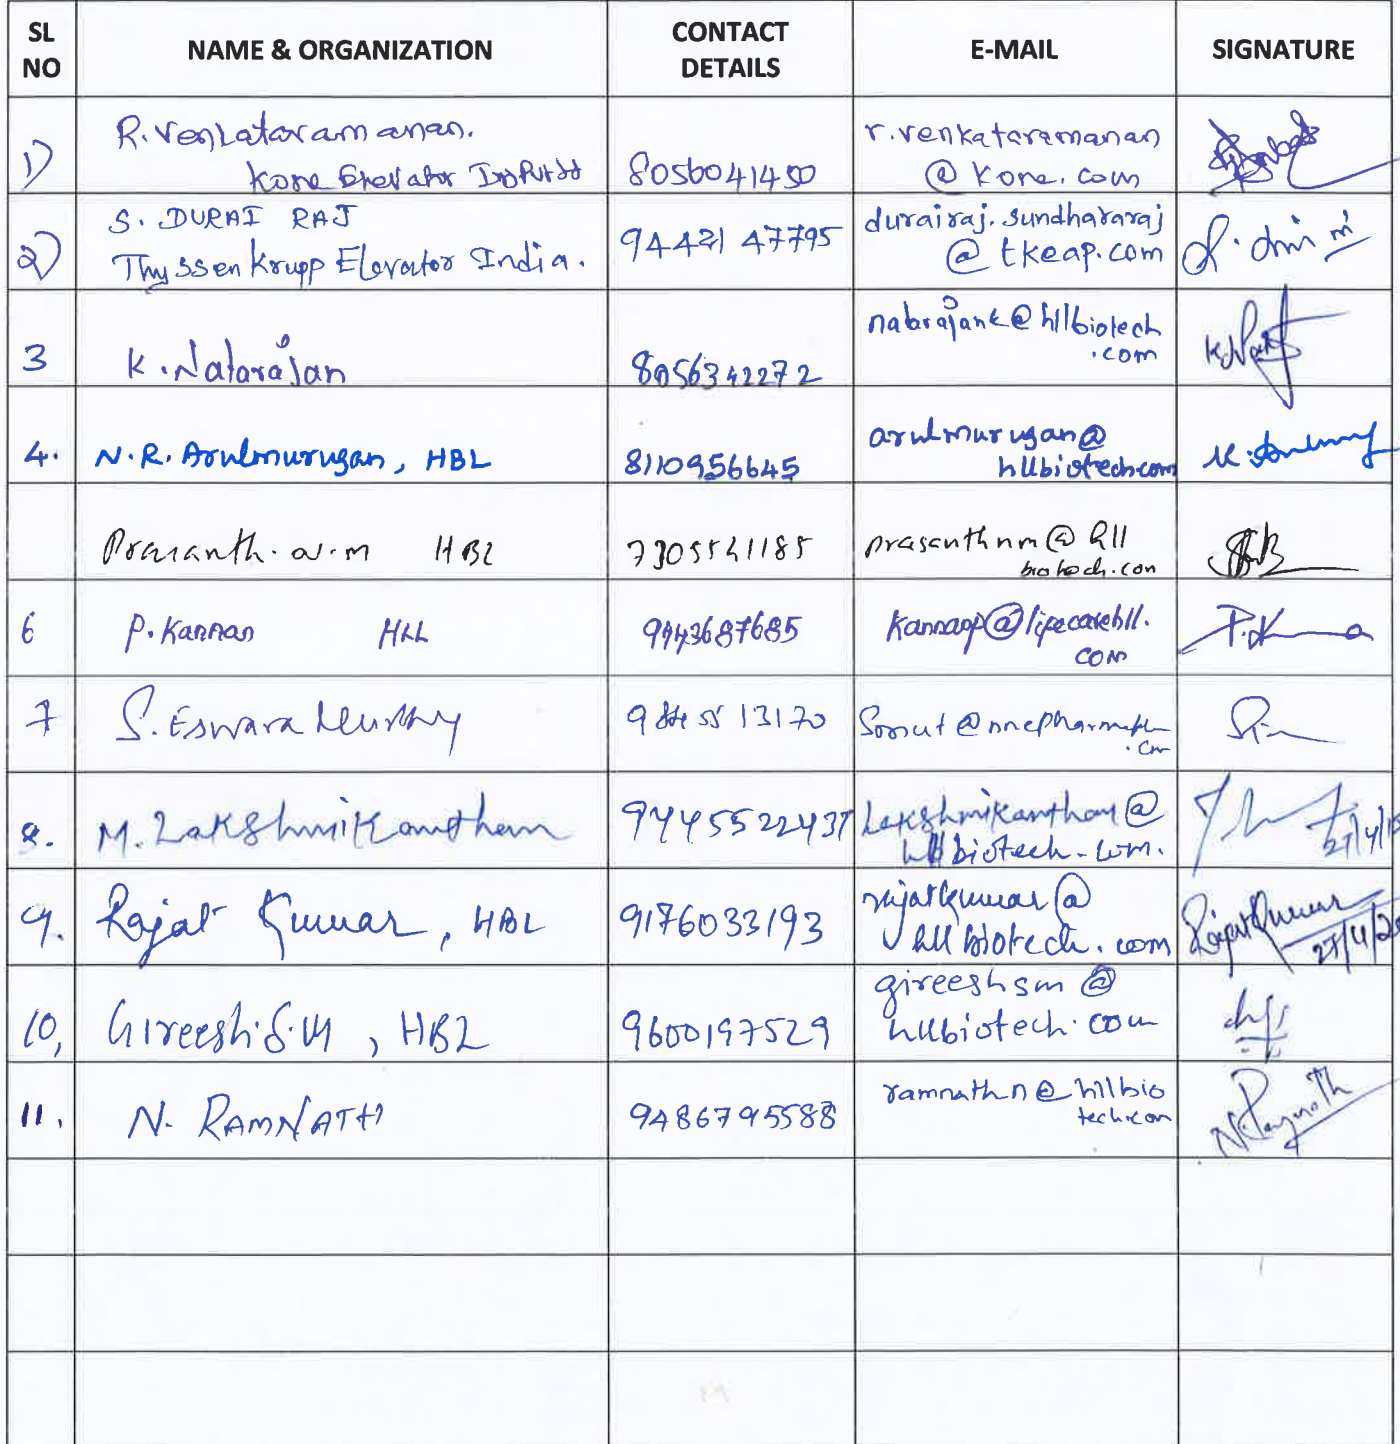 SL NO
NAME & ORGANIZATION
CONTACT DETAILS
E-MAIL
SIGNATURE
1)
R. Venkataramanan.
Kone Elevator
8056041450
r.venkataramanan
@ Kone.com
2)
S. DURAI RAJ
Thyssen Krupp Elevator India.
94421 47795
durairaj.sundhararaj
@ tkeap.com
3
K. Natarajan
8056342272
natarajank@hllbiotech
.com
4.
N.R. Arulmurugan, HBL
8110956645
arulmurugan@
hllbiotech.com
Prasanth. N. M HBL
7305541185
prasanthnm@hll
biotech.com
6
P. Kannan HLL
9443687685
kannanp@lifecarehll.
com
P.K
7
S. Eswara Murthy
98455 13170
8.
M. Lakshmikantham
9445522437
Lakshmikantham@
hllbiotech.com.
27/4/15
9.
Rajat Kumar, HBL
9176033193
rajatkumar@
hllbiotech.com
Rajat Kumar
27/4/20
10,
Gireesh.S.M, HBL
9600197529
gireeshsm@
hllbiotech.com
11.
N. RAMNATH
9486795588
ramnathn@hllbio
tech.com
N. Ramnath